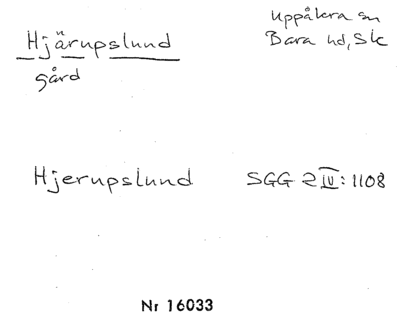 Hjärupslund
gård
Uppåkra sn
Bara hd, Sk
Hjerupslund SGG 2 IV: 1108
Nr 16033